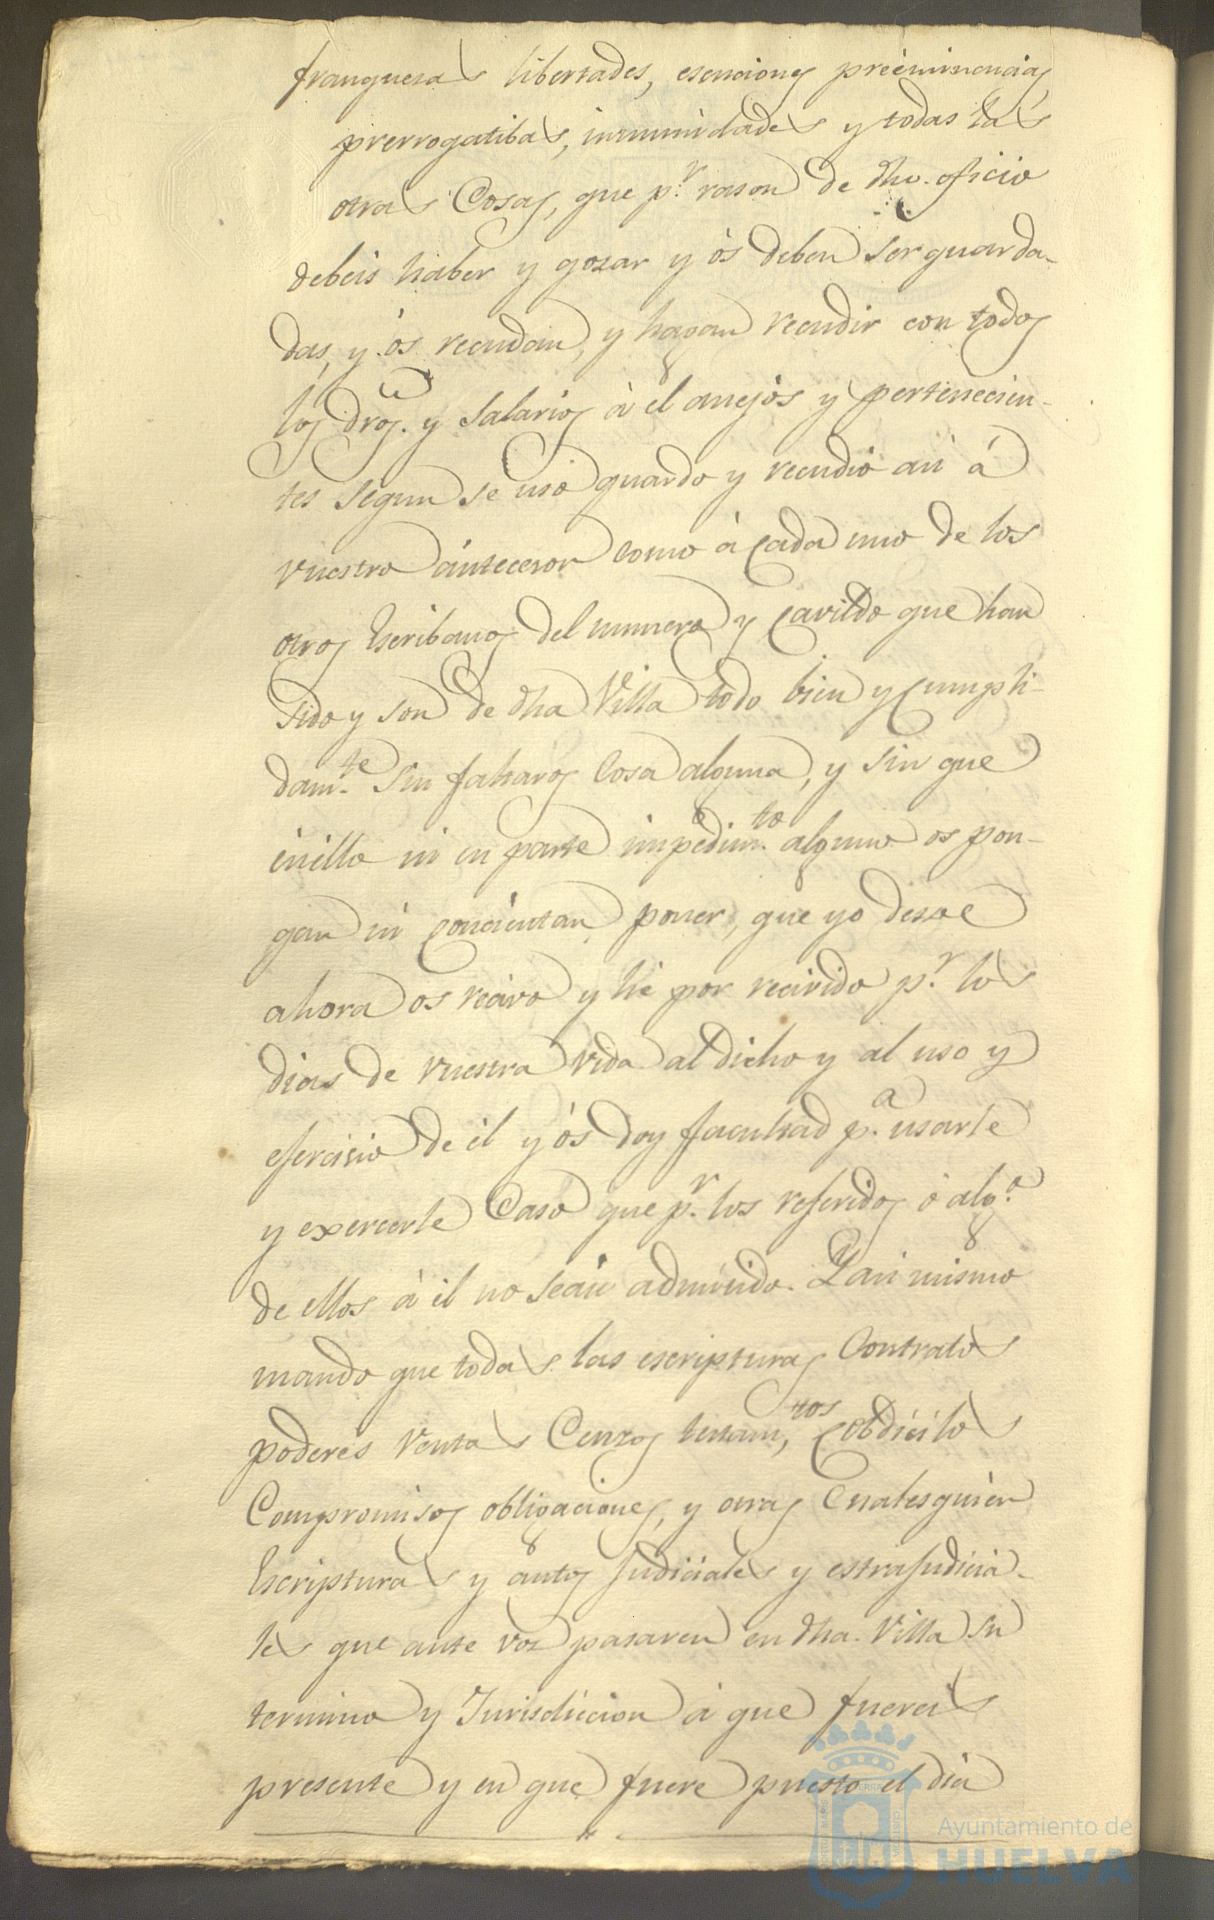 franquesas libertades, esenciones preèminencias,
prerrogatibas, inmunidades y todas las
otras Cosas, que p.r rason de dho. oficio
debeis haber y gozar y òs deben ser guarda-
das, y òs recudan, y hagan recudir con todos
los dros. y Salarios à el anejos y pertenecien-
tes segun se usò guardo y recudiò asi à
vuestro àntecesor como à cada uno de los
otros Escribanos del numero y Cavildo que han
sido y son de dha Villa todo bien y Cumpli-
dam.te sin faltaros Cosa alguna, y sin que
ènello ni en parte impèdim.to alguno os pon-
gan ni Concientan poner, que yo desde
ahora os recivo y hè por recivido p.r los
dias de vuestra vida al dicho y al uso y
esercisio de èl y òs doy facultad p.a usarle
y exercerle Caso que p.r los referidos ò alg.o
de ellos à èl no seais admitido. Y asi mismo
mando que todas las escripturas Contratos
poderes Ventas Cenzos testam,tos Cobdicilos
Compromisos obligaciones, y otras Cualesquier
Escripturas y àutos Judiciales y estrajudicia-
les que ante vos pasaren en dha. Villa su
termino y Jurisdiccion à que fuereis
presente y en que fuere puesto el dia
Ayuntamiento de
HUELVA